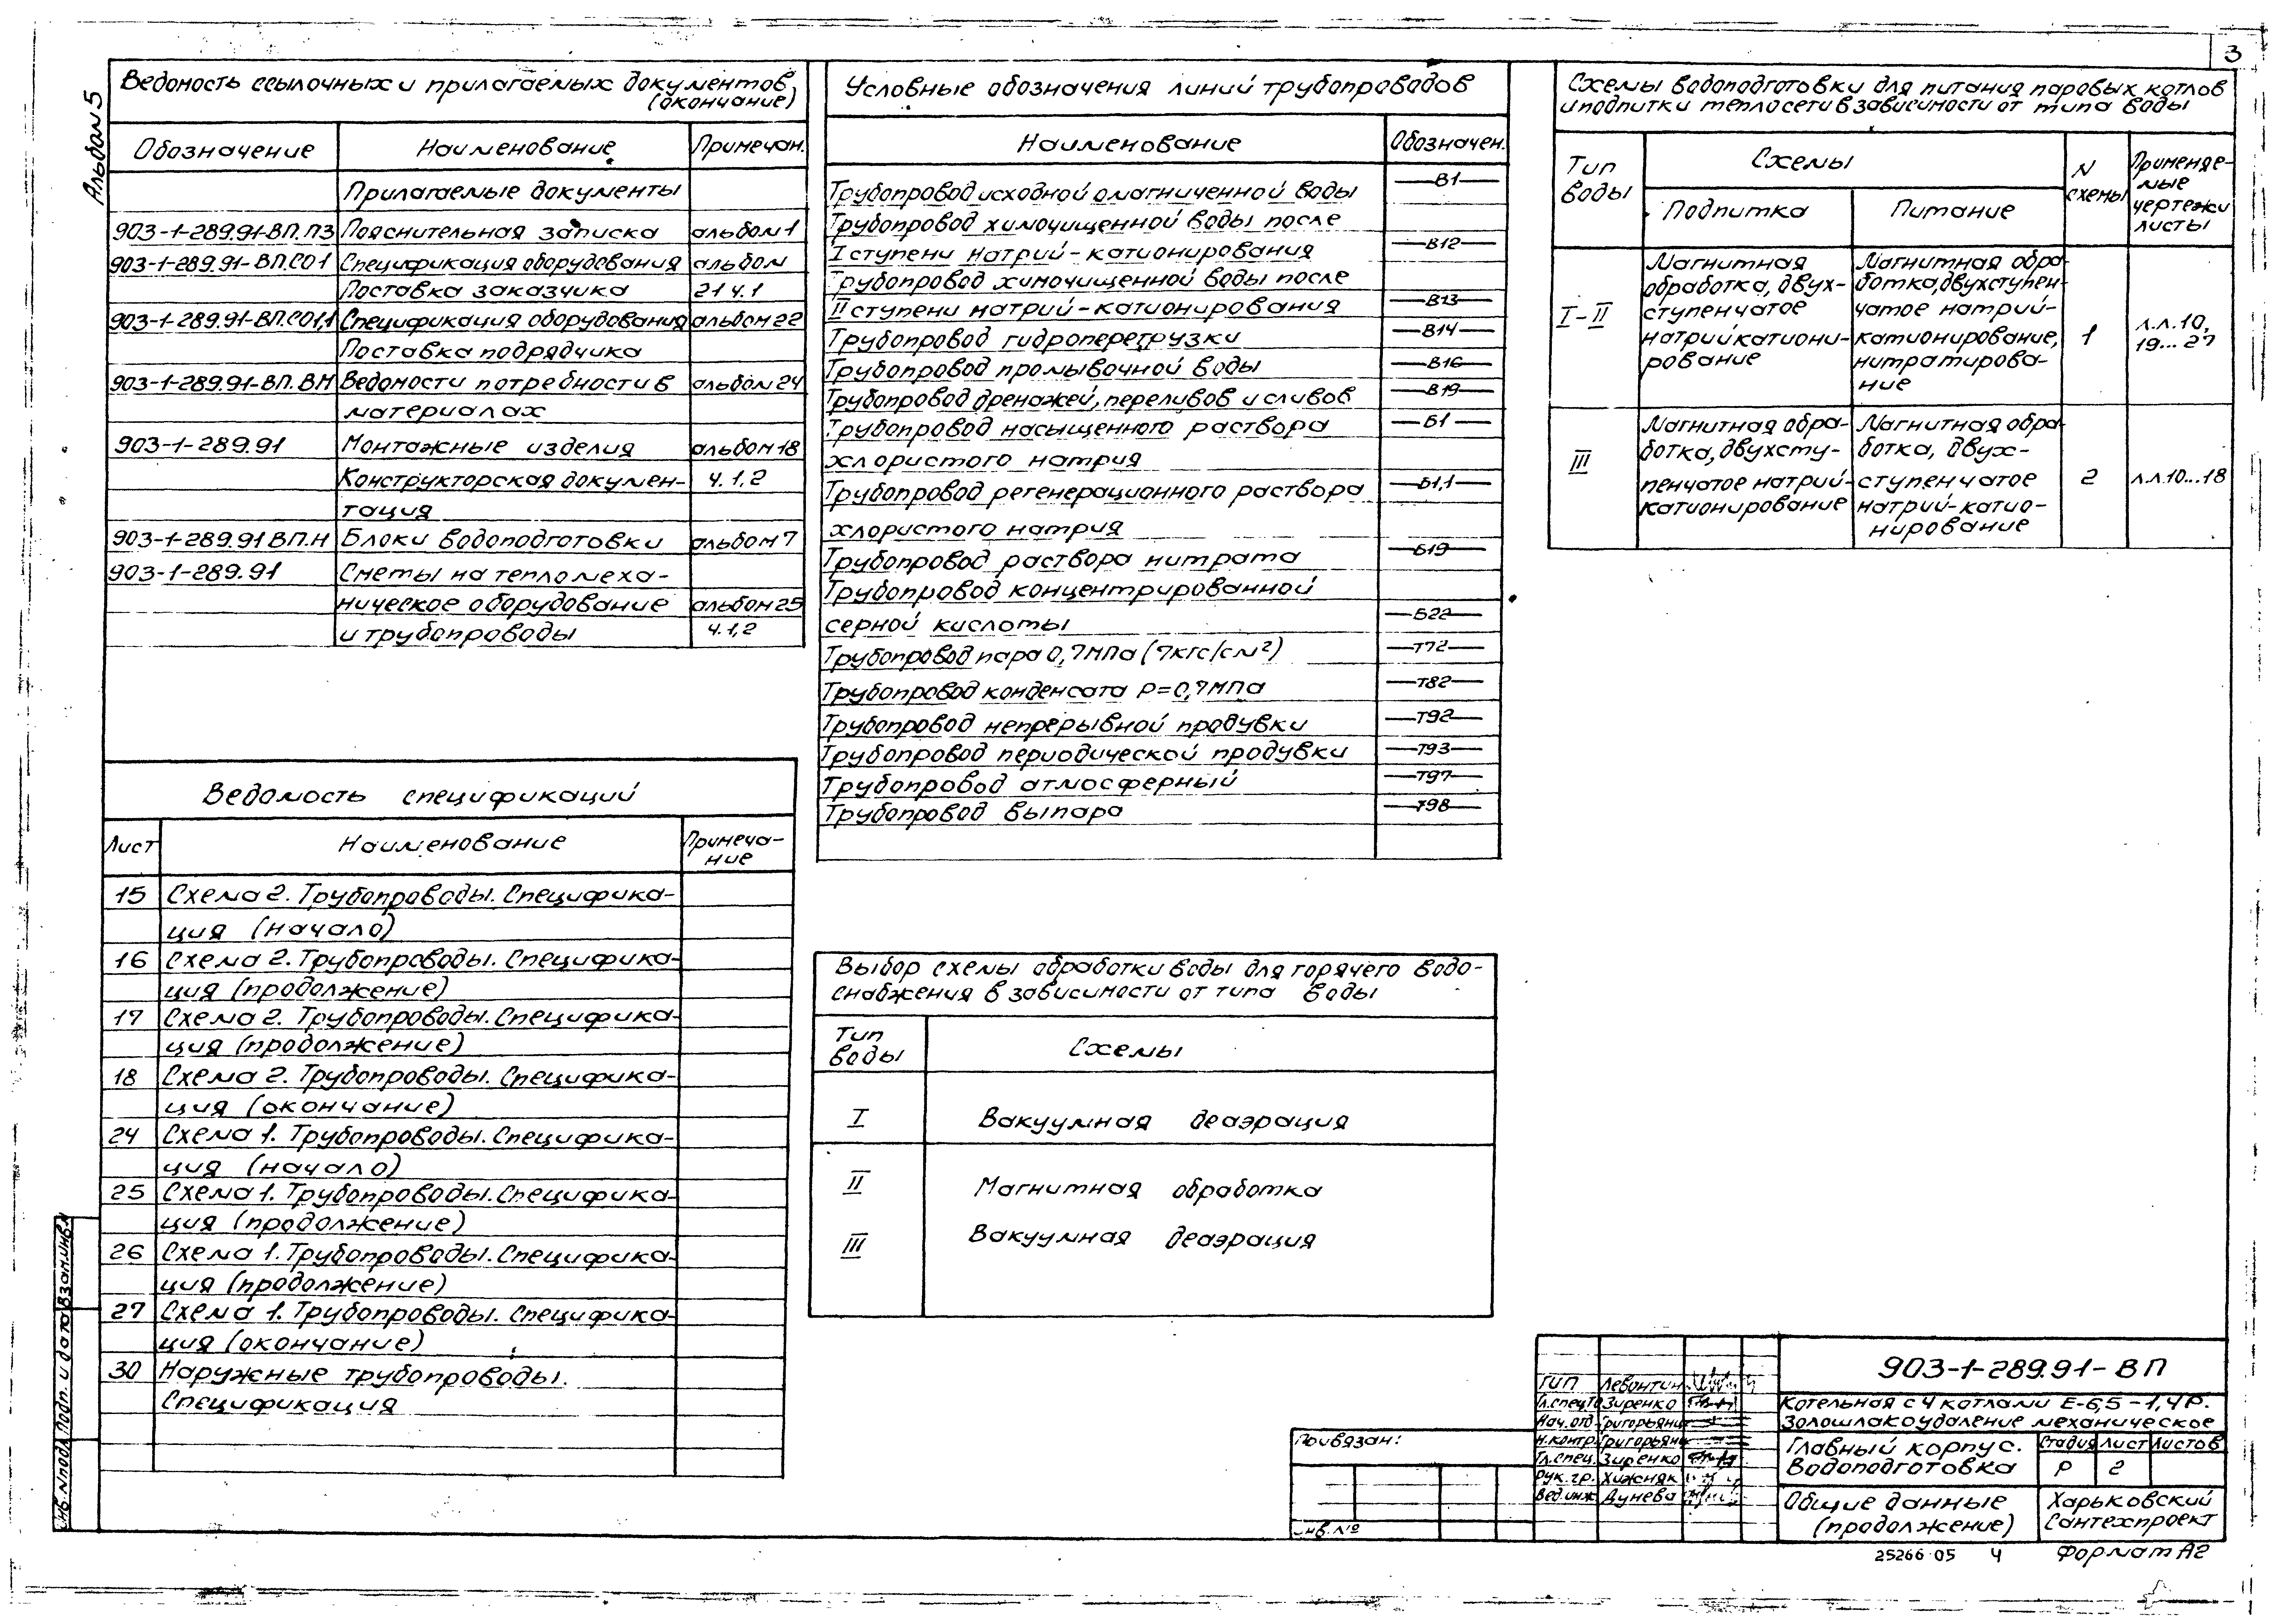 3
Альбом 5
Ведомость ссылочных и прилагаемых документов
(окончание)
Обозначение Наименование Примечан.
Прилагаемые документы
903-1-289.91-ВП.ПЗ Пояснительная записка альбом 1
903-1-289.91-ВП.СО1 Спецификация оборудования альбом
Поставка заказчика 21 ч.1
903-1-289.91-ВП.СО1,1 Спецификация оборудования альбом 22
Поставка подрядчика
903-1-289.91-ВП.ВМ Ведомости потребности в альбом 24
материалах
903-1-289.91 Монтажные изделия альбом 18
Конструкторская докумен- ч.1,2
тация
903-1-289.91 ВП.Н Блоки водоподготовки альбом 7
903-1-289.91 Сметы на тепломеха-
ническое оборудование альбом 25
и трубопроводы ч.1,2
Ведомость спецификаций
Лист Наименование Примеча-
ние
15 Схема 2. Трубопроводы. Специфика-
ция (начало)
16 Схема 2. Трубопроводы. Специфика-
ция (продолжение)
17 Схема 2. Трубопроводы. Специфика-
ция (продолжение)
18 Схема 2. Трубопроводы. Специфика-
ция (окончание)
24 Схема 1. Трубопроводы. Специфика-
ция (начало)
25 Схема 1. Трубопроводы. Специфика-
ция (продолжение)
26 Схема 1. Трубопроводы. Специфика-
ция (продолжение)
27 Схема 1. Трубопроводы. Специфика-
ция (окончание)
30 Наружные трубопроводы.
Спецификация
Условные обозначения линий трубопроводов
Наименование Обозначен.
Трубопровод исходной омагниченной воды В1
Трубопровод химочищенной воды после
I ступени натрий-катионирования В12
Трубопровод химочищенной воды после
II ступени натрий-катионирования В13
Трубопровод гидроперегрузки В14
Трубопровод промывочной воды В16
Трубопровод дренажей, переливов и сливов В19
Трубопровод насыщенного раствора Б1
хлористого натрия
Трубопровод регенерационного раствора Б1,1
хлористого натрия
Трубопровод раствора нитрата Б19
Трубопровод концентрированной
серной кислоты Б22
Трубопровод пара 0,7МПа (7кгс/см²) Т72
Трубопровод конденсата Р=0,7МПа Т82
Трубопровод непрерывной продувки Т92
Трубопровод периодической продувки Т93
Трубопровод атмосферный Т97
Трубопровод выпара Т98
Выбор схемы обработки воды для горячего водо-
снабжения в зависимости от типа воды
Тип
воды Схемы
I Вакуумная деаэрация
II Магнитная обработка
III Вакуумная деаэрация
Схемы водоподготовки для питания паровых котлов
и подпитки теплосети в зависимости от типа воды
Тип
воды
Схемы
Подпитка Питание
N
схемы
Применяе-
мые
чертежи
листы
I-II
Магнитная
обработка, двух-
ступенчатое
натрийкатиони-
рование
Магнитная обра-
ботка, двухступен-
чатое натрий-
катионирование,
нитратирова-
ние
1
л.л.10,
19...27
III
Магнитная обра-
ботка, двухсту-
пенчатое натрий-
катионирование
Магнитная обра-
ботка, двух-
ступенчатое
натрий-катио-
нирование
2
л.л.10...18
Инв.N подл. Подп. и дата Взам.инв.N
Привязан:
Инв.№
ГИП Левонтин
Гл.спец.ТО Зиренко
Нач.отд Григорьянц
Н.контр Григорьянц
Гл.спец. Зиренко
Рук.гр. Хижняк
Вед.инж Дунева
903-1-289.91-ВП
Котельная с 4 котлами Е-6,5-1,4Р.
Золошлакоудаление механическое
Главный корпус.
Водоподготовка
Стадия Лист Листов
Р 2
Общие данные
(продолжение)
Харьковский
Сантехпроект
25266-05 4 Формат А2